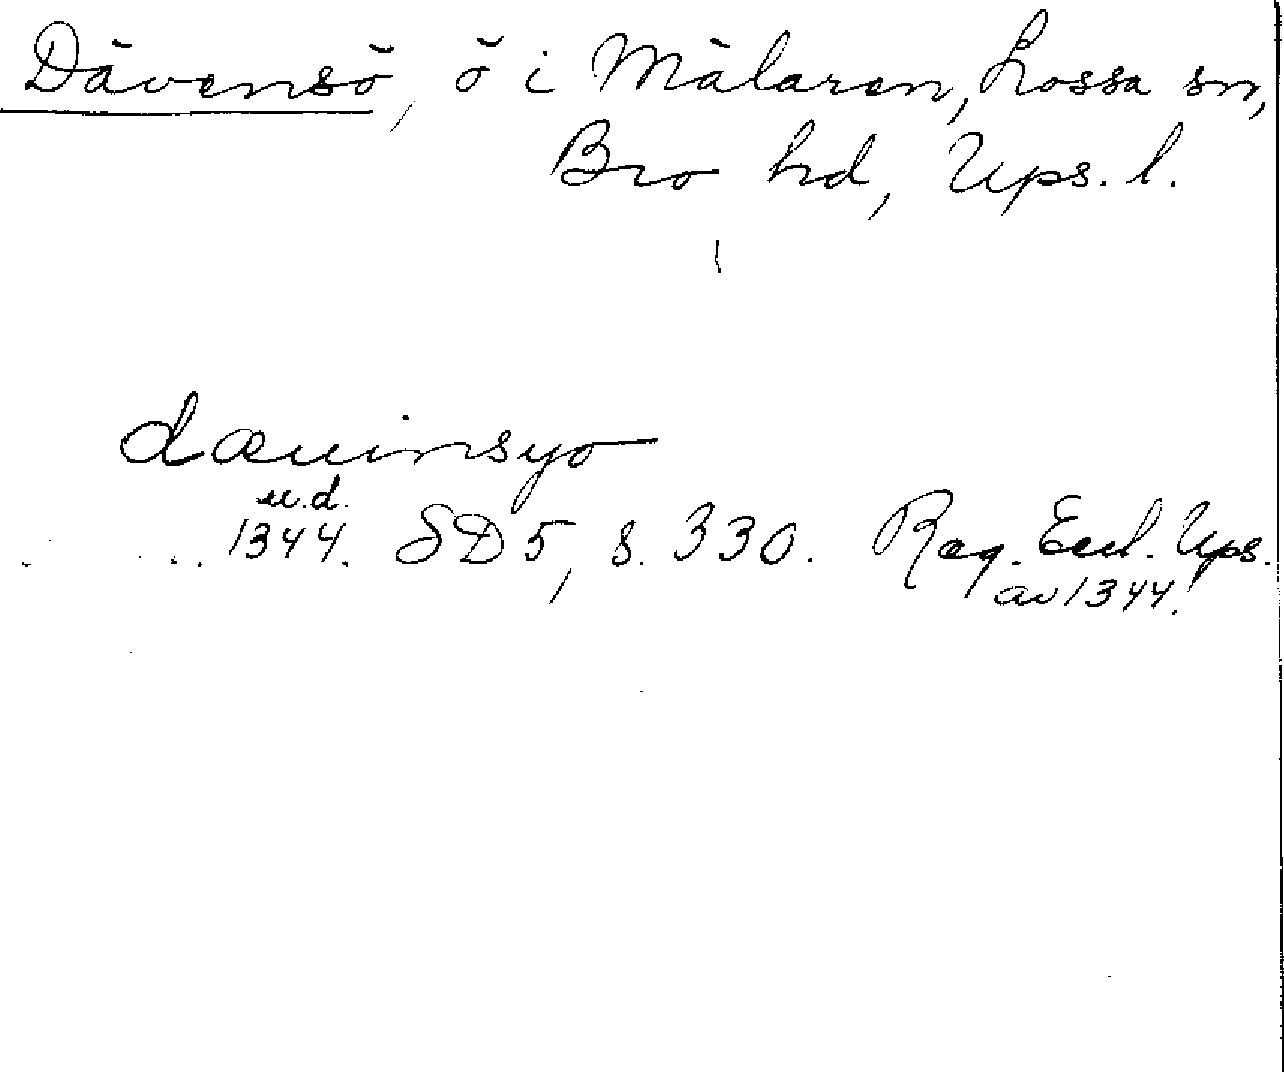 Dävensö, ö i Mälaren, Lossa sn,
Bro hd, Ups. l.
dæuinsyo
u.d.
1344. SD 5, s. 330. Reg. Eccl. Ups.
av 1344.